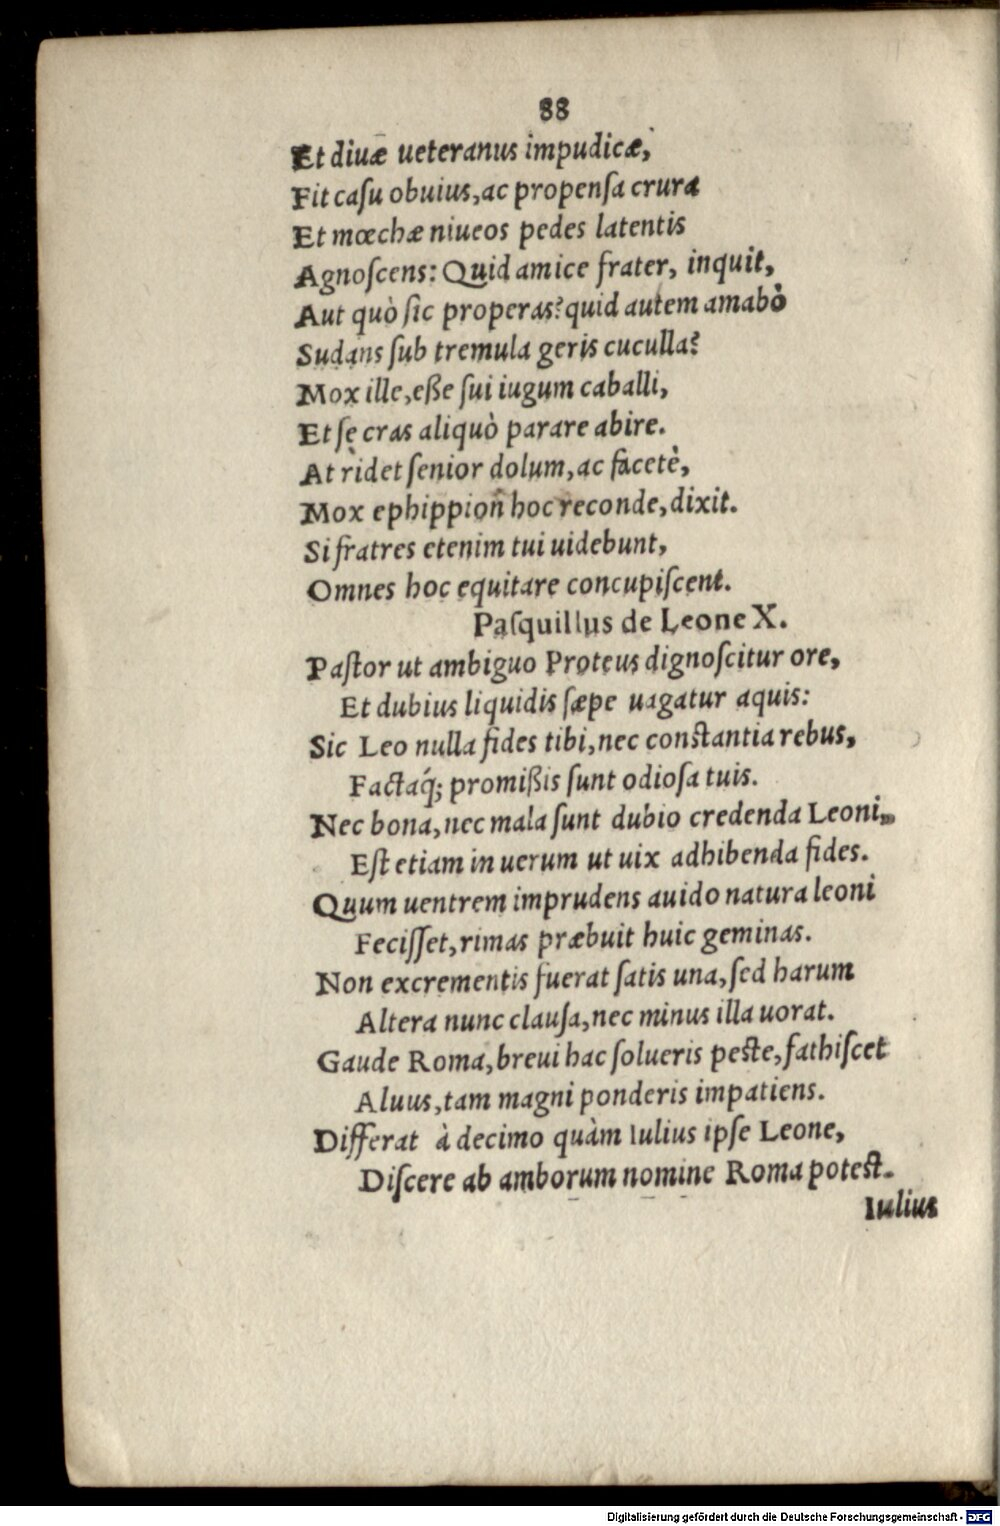 88
Et diuæ ueteranus impudicæ,
Fit caſu obuius, ac propenſa crura
Et mœchæ niueos pedes latentis
Agnoſcens: Quid amice frater, inquit,
Aut quò ſic properas? quid autem amabò
Sudans ſub tremula geris cuculla?
Mox ille, eße ſui iugum caballi,
Et ſe cras aliquò parare abire.
At ridet ſenior dolum, ac facetè,
Mox ephippion hoc reconde, dixit.
Si fratres etenim tui uidebunt,
Omnes hoc equitare concupiſcent.
Paſquillus de Leone X.
Paſtor ut ambiguo Proteus dignoſcitur ore,
Et dubius liquidis ſæpe uagatur aquis:
Sic Leo nulla fides tibi, nec conſtantia rebus,
Factaq́; promißis ſunt odioſa tuis.
Nec bona, nec mala ſunt dubio credenda Leoni,
Eſt etiam in uerum ut uix adhibenda fides.
Quum uentrem imprudens auido natura leoni
Feciſſet, rimas præbuit huic geminas.
Non excrementis fuerat ſatis una, ſed harum
Altera nunc clauſa, nec minus illa uorat.
Gaude Roma, breui hac ſolueris peſte, fathiſcet
Aluus, tam magni ponderis impatiens.
Differat à decimo quàm Iulius ipſe Leone,
Diſcere ab amborum nomine Roma poteſt.
Iulius
Digitalisierung gefördert durch die Deutsche Forschungsgemeinschaft - DFG